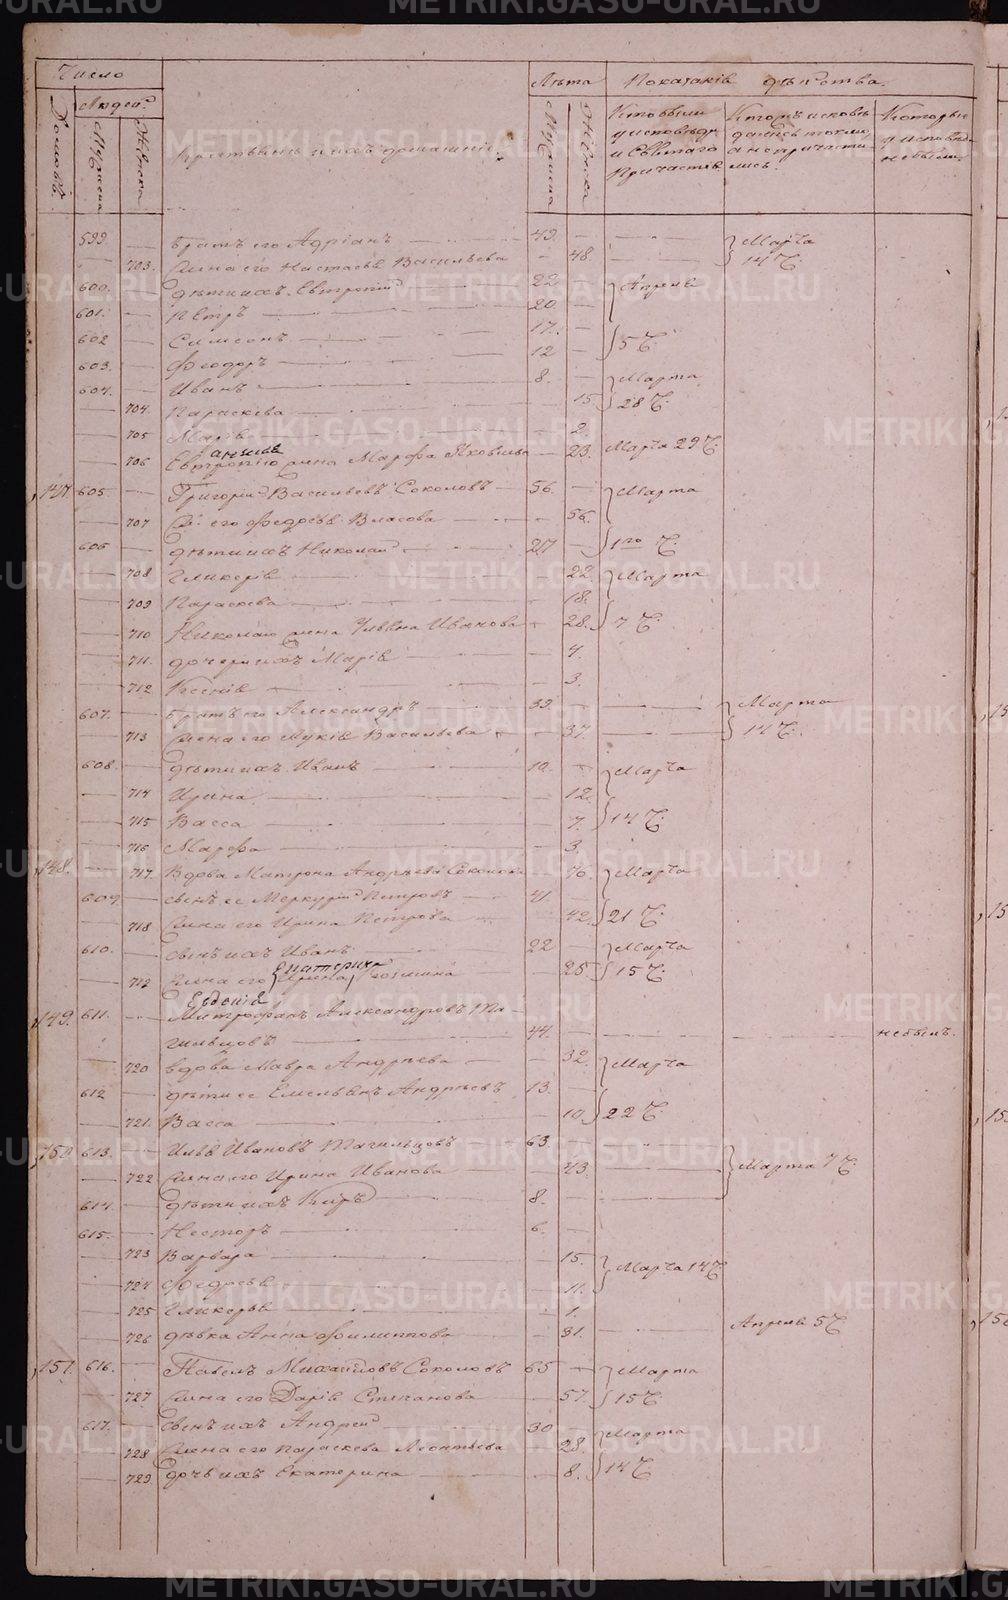 Число
Лѣта Показанiе дѣйства.
Домовъ. Людей
Мужеска Женска
Крестьяне и ихъ домашнiе
Мужеска Женска
Кто были у исповѣди и Святаго Причастiя
Которые исповѣдались токмо а не причастились
Которые у исповѣди не были
599 — Братъ его Адрiанъ 49. Марта
— 703. Жена его Настасья Васильева — 48 14 Ч.
600. — Дѣти ихъ Евтропiй 22 Апреля
601. — Петръ 20.
602 — Симеонъ 17. 5 Ч.
603. — Феодоръ 12
604. — Иванъ 8. Марта
— 704. Параскева 15 28 Ч.
— 705 Марiя 2.
— 706 Евтропiю жена Марфа Яковлева — 23. Марта 29 Ч.
147 605. — Григорiй Васильевъ Соколовъ 56. Марта
— 707 Ж: его Федосья Власова 56.
606 — Дѣти ихъ Николай 27 1го Ч.
— 708 Гликерiя 22. Марта
— 709 Параскева 18.
— 710 Николаю жена Ульяна Иванова 28. 7 Ч.
— 711. Дочери ихъ Марiя 4.
— 712 Ксенiя 3.
607. — Братъ его Александръ 39. Марта
— 713 Жена его Лукiя Васильева 37. 14 Ч.
608. — Дѣти ихъ Иванъ 10. Марта
— 714 Ирина 12.
— 715 Васса 7. 14 Ч.
— 716 Марфа 3
148. — 717. Вдова Матрона Андрѣева Соколов. 76. Марта
609 — Сынъ ее Меркурiй Петровъ 41.
— 718 Жена его Ирина Петрова 42. 21 Ч.
610. — Сынъ ихъ Иванъ 22 Марта
Екатерина
— 719 Жена его Ирина Козмина 25. 15 Ч.
149. 611. — Митрофанъ Александровъ Та-
гильцовъ 44. небылъ.
— 720 Вдова Мавра Андрѣева — 32. Марта
612 — Дѣти ее Емельянъ Андрѣевъ 13.
— 721. Васса 10. 22 Ч.
150 613. — Илья Ивановъ Тагильцовъ 63.
— 722 Жена его Ирина Иванова — 43. Марта 7 Ч.
614. — Дѣти ихъ Киръ 8.
615. — Несторъ 6.
— 723 Варвара 15. Марта 14 Ч.
— 724 Федосья 11.
— 725 Гликерья 1.
— 726 Дѣвка Анна Филиппова 31. Апреля 5 Ч
151. 616. — Павелъ Михайловъ Соколовъ 65 Марта
— 727 Жена его Дарiя Степанова 57. 15 Ч.
617. — Сынъ ихъ Андрей 30 Марта
— 728 Жена его Параскева Леонтьева 28.
— 729. Дочь ихъ Екатерина 8. 14 Ч.
METRIKI.GASO-URAL.RU